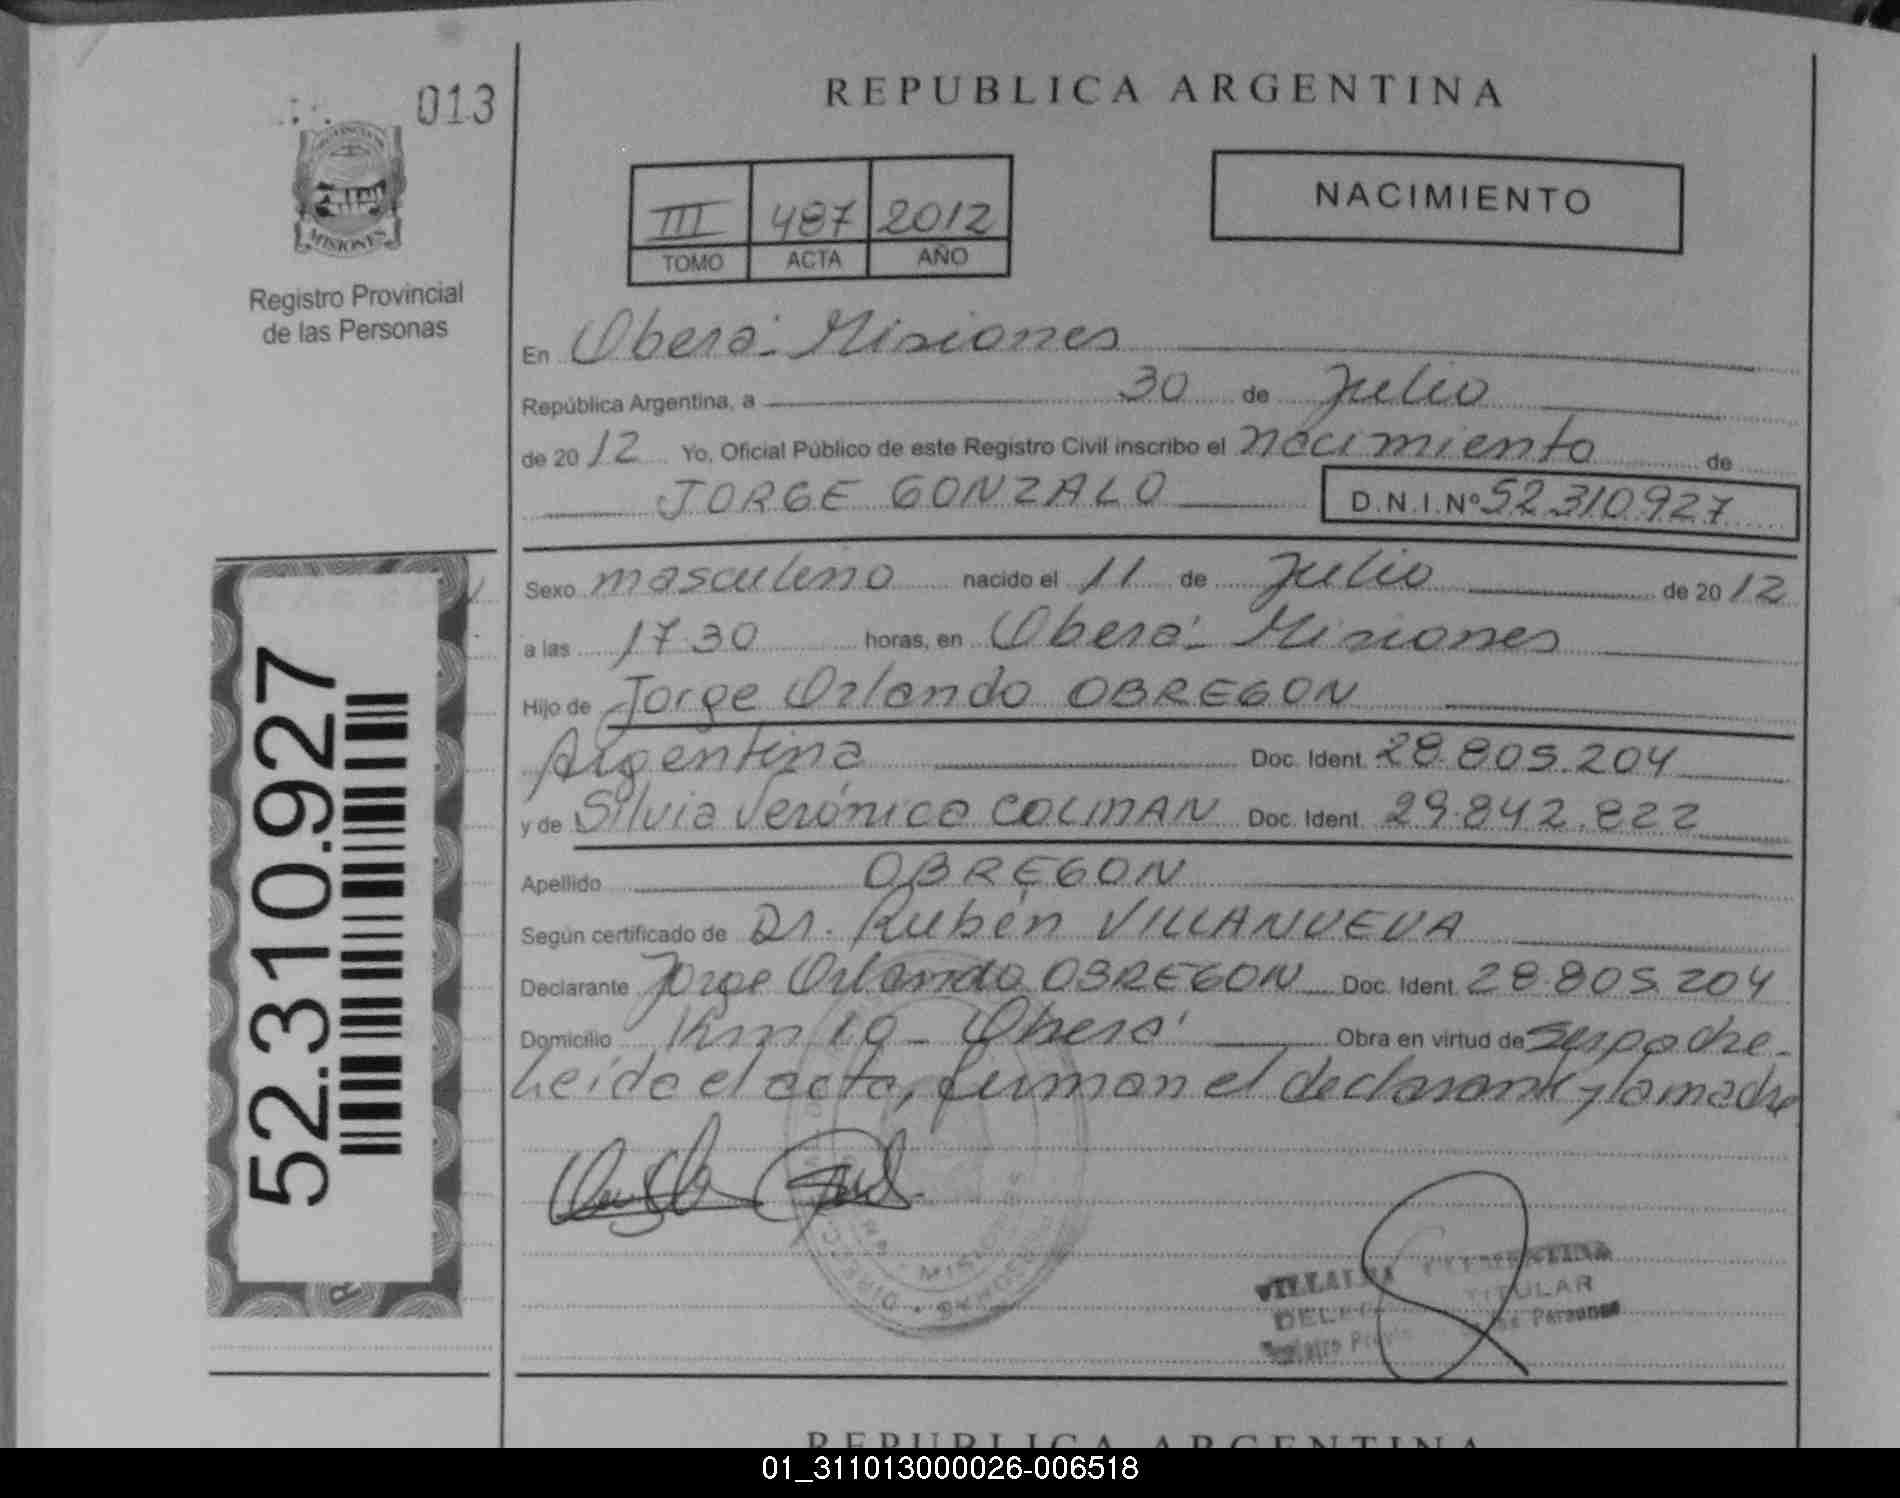 013
REPUBLICA ARGENTINA
III 487 2012
TOMO ACTA AÑO
NACIMIENTO
MISIONES
Registro Provincial
de las Personas
En Oberá - Misiones
República Argentina, a 30 de Julio
de 2012 Yo, Oficial Público de este Registro Civil inscribo el nacimiento de
JORGE GONZALO D.N.I.Nº 52.310.927
Sexo masculino nacido el 11 de Julio de 2012
a las 17.30 horas, en Oberá - Misiones
Hijo de Jorge Orlando OBREGON
Argentina Doc. Ident. 28.805.204
y de Silvia Verónica COLMAN Doc. Ident. 29.842.822
Apellido OBREGON
Según certificado de Dr. Rubén VILLANUEVA
Declarante Jorge Orlando OBREGON Doc. Ident. 28.805.204
Domicilio Km 10 - Oberá Obra en virtud de ser padre.
Leída el acta, firman el declarante y la madre
52.310.927
MISIONES
TITULAR
Personas
REPUBLICA ARGENTINA
01_311013000026-006518